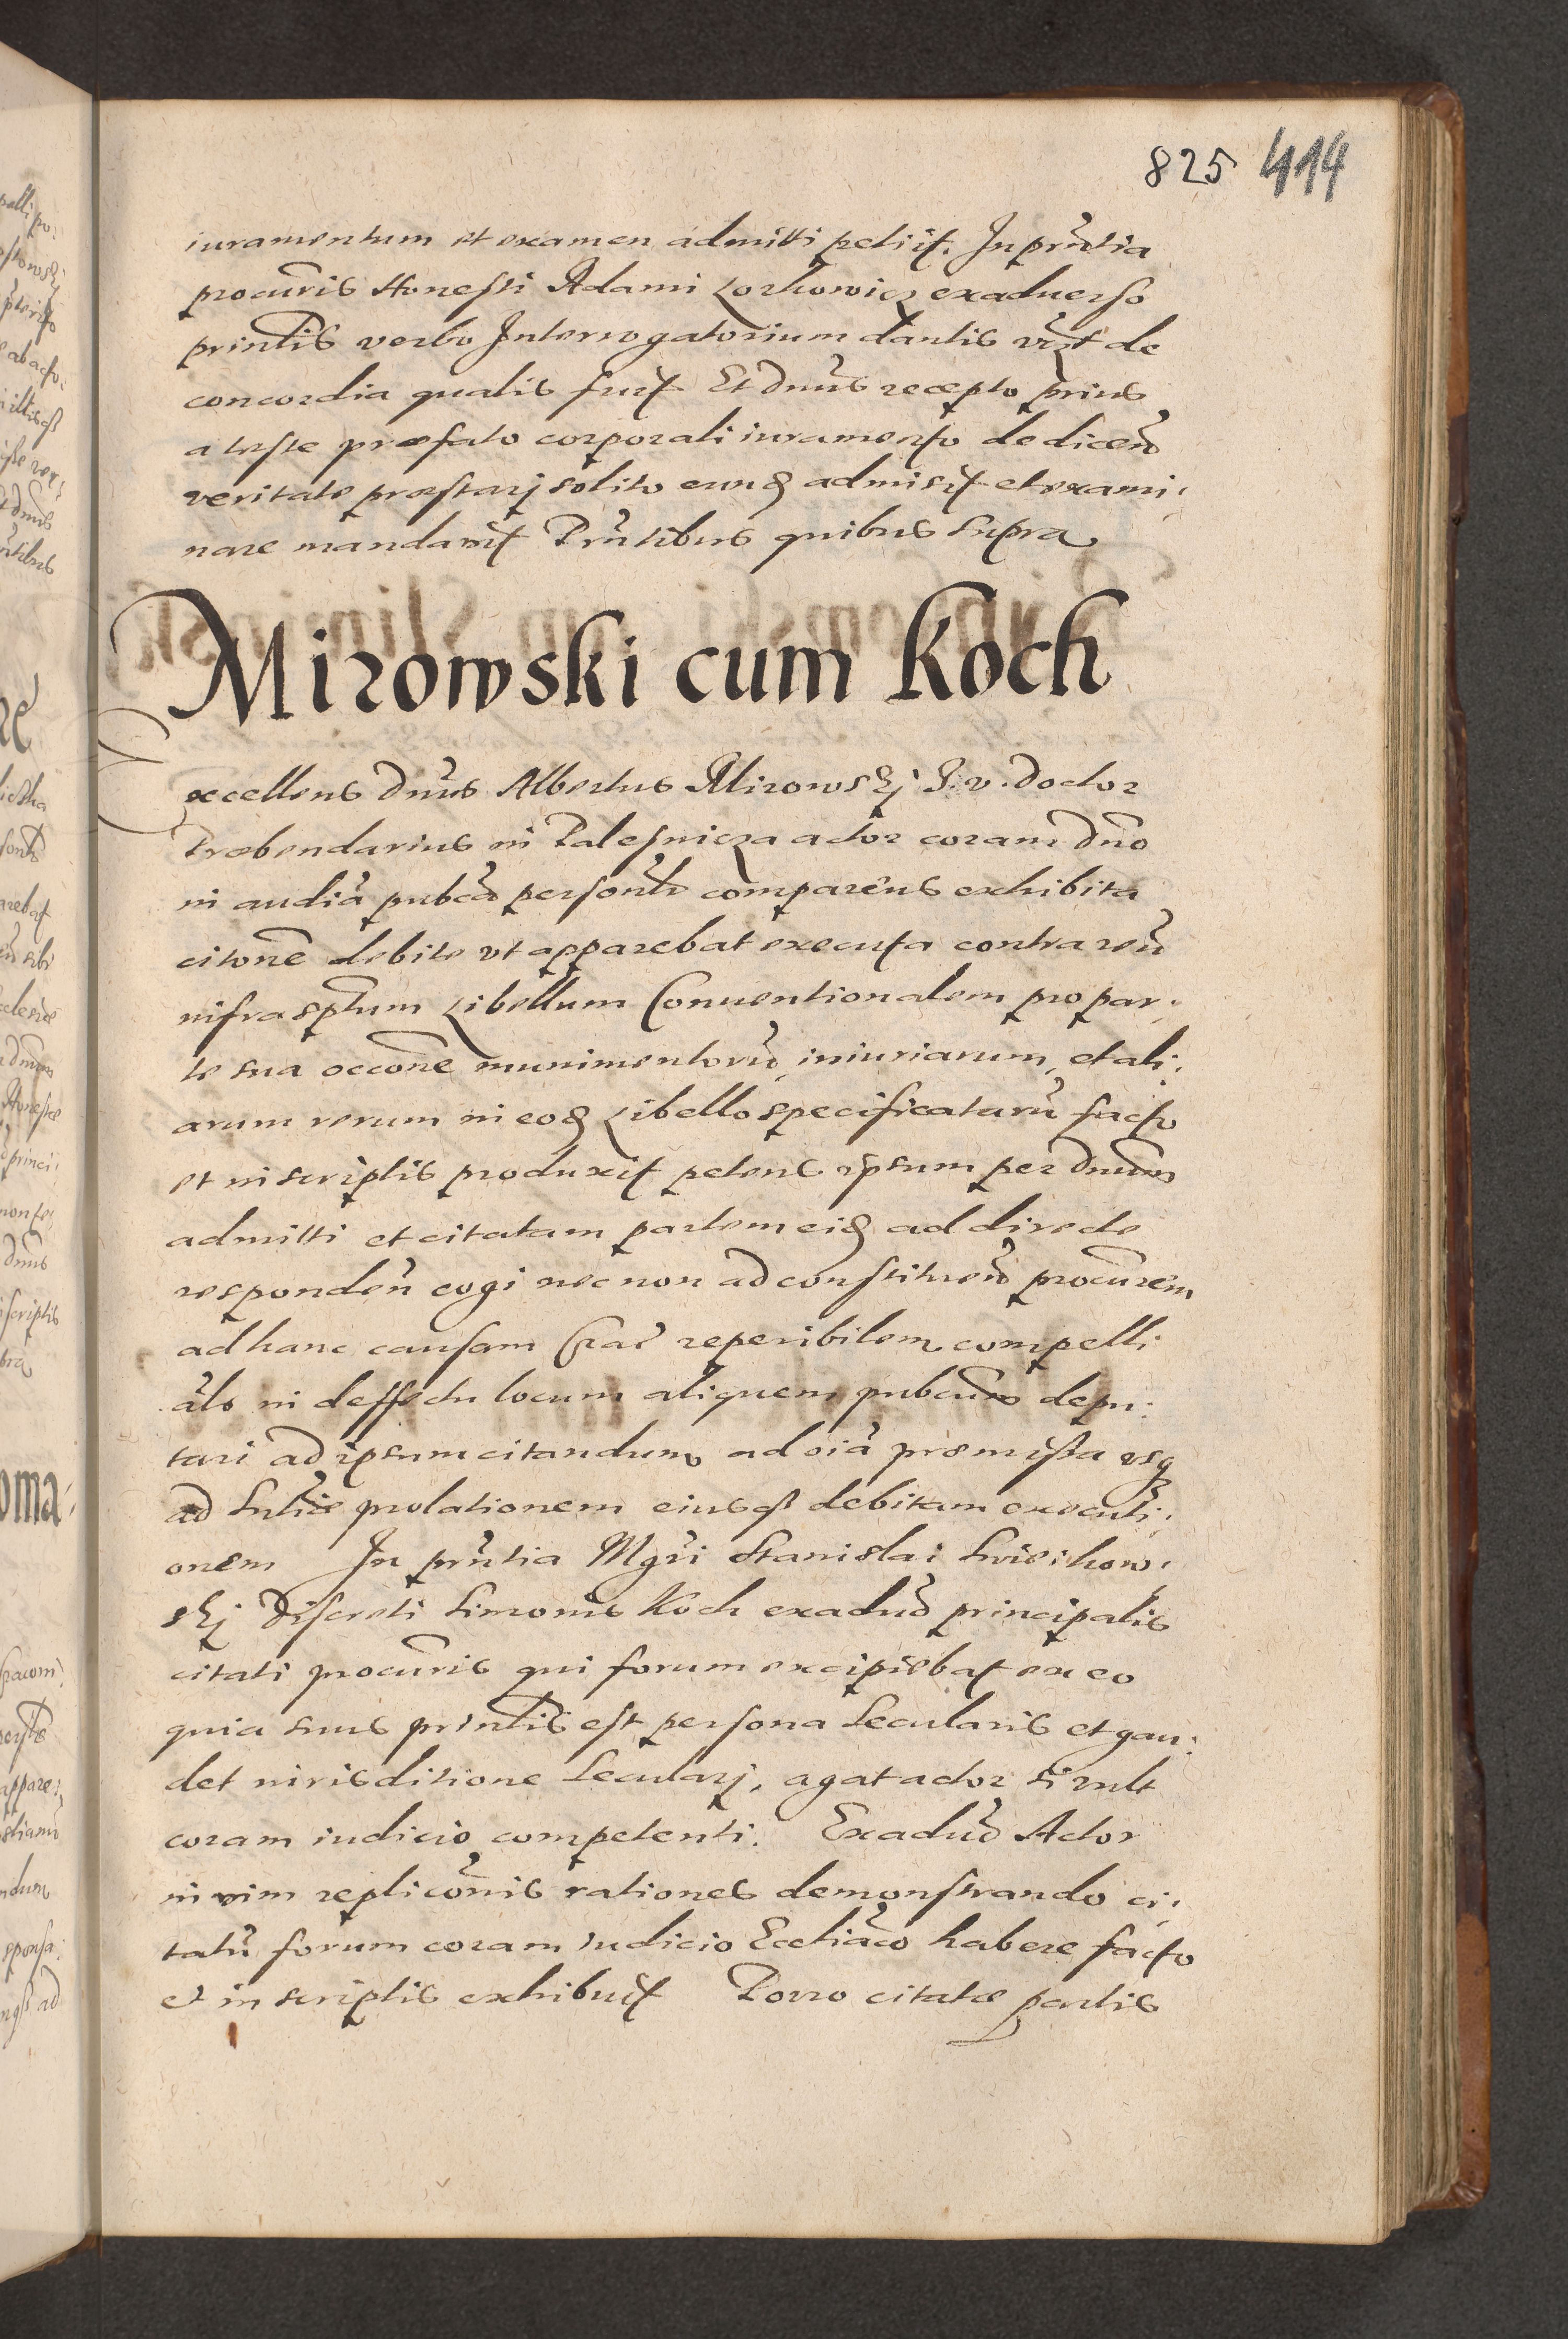 825 414
iuramentum et examen admitti petiit. In pñtia
procuris Honesti Adami Lorkowicz exaduerso
printis verbo Interrogatorium dantis vzt de
concordia qualis fuit Et dnus recepto prius
a teste præfato corporali iuramento de dicen
veritate præstarj solito eund admisit et exami,
nare mandauit Pñtibus quibus supra
Mirowski cum Koch
Excellens Dnus Albertus Mirowskj J. v. doctor
Præbendarius in Palesnicza actor coram dno
in audia pubca personlr comparens exhibita
citone debite vt apparebat executa contra reu
infrasptum Libellum Conuentionalem pro par,
te sua occone munimentoru, iniuriarum, et ali,
arum rerum in eod Libello specificataru facto
et in scriptis produxit petens ipsum per dnum
admitti et citatam partem eid ad directe
responden cogi nec non ad constituen procurem
ad hanc causam Crac reperibilem compelli
als in deffectu locum aliquem pubcum depu:
tari ad ipsum citandum ad oia præmissa vsq
ad sntiæ prolationem eiusqz debitam executi,
onem In pñtia Mgri Stanislai
skj Discreti Simonis Koch exaduo principalis
citati procuris qui forum excipiebat ex eo
quia suus printis est persona secularis et gau:
det iurisditione secularj, agat actor si vult
coram iudicio competenti. Exaduo Actor
in vim repliconis rationes demonstrando ci,
tatu forum coram iudicio Eccliaco habere facto
et in scriptis exhibuit Porro citatæ partis